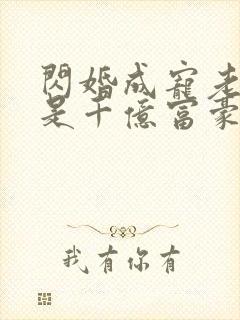 閃婚成寵老
是千億富豪
我有你有